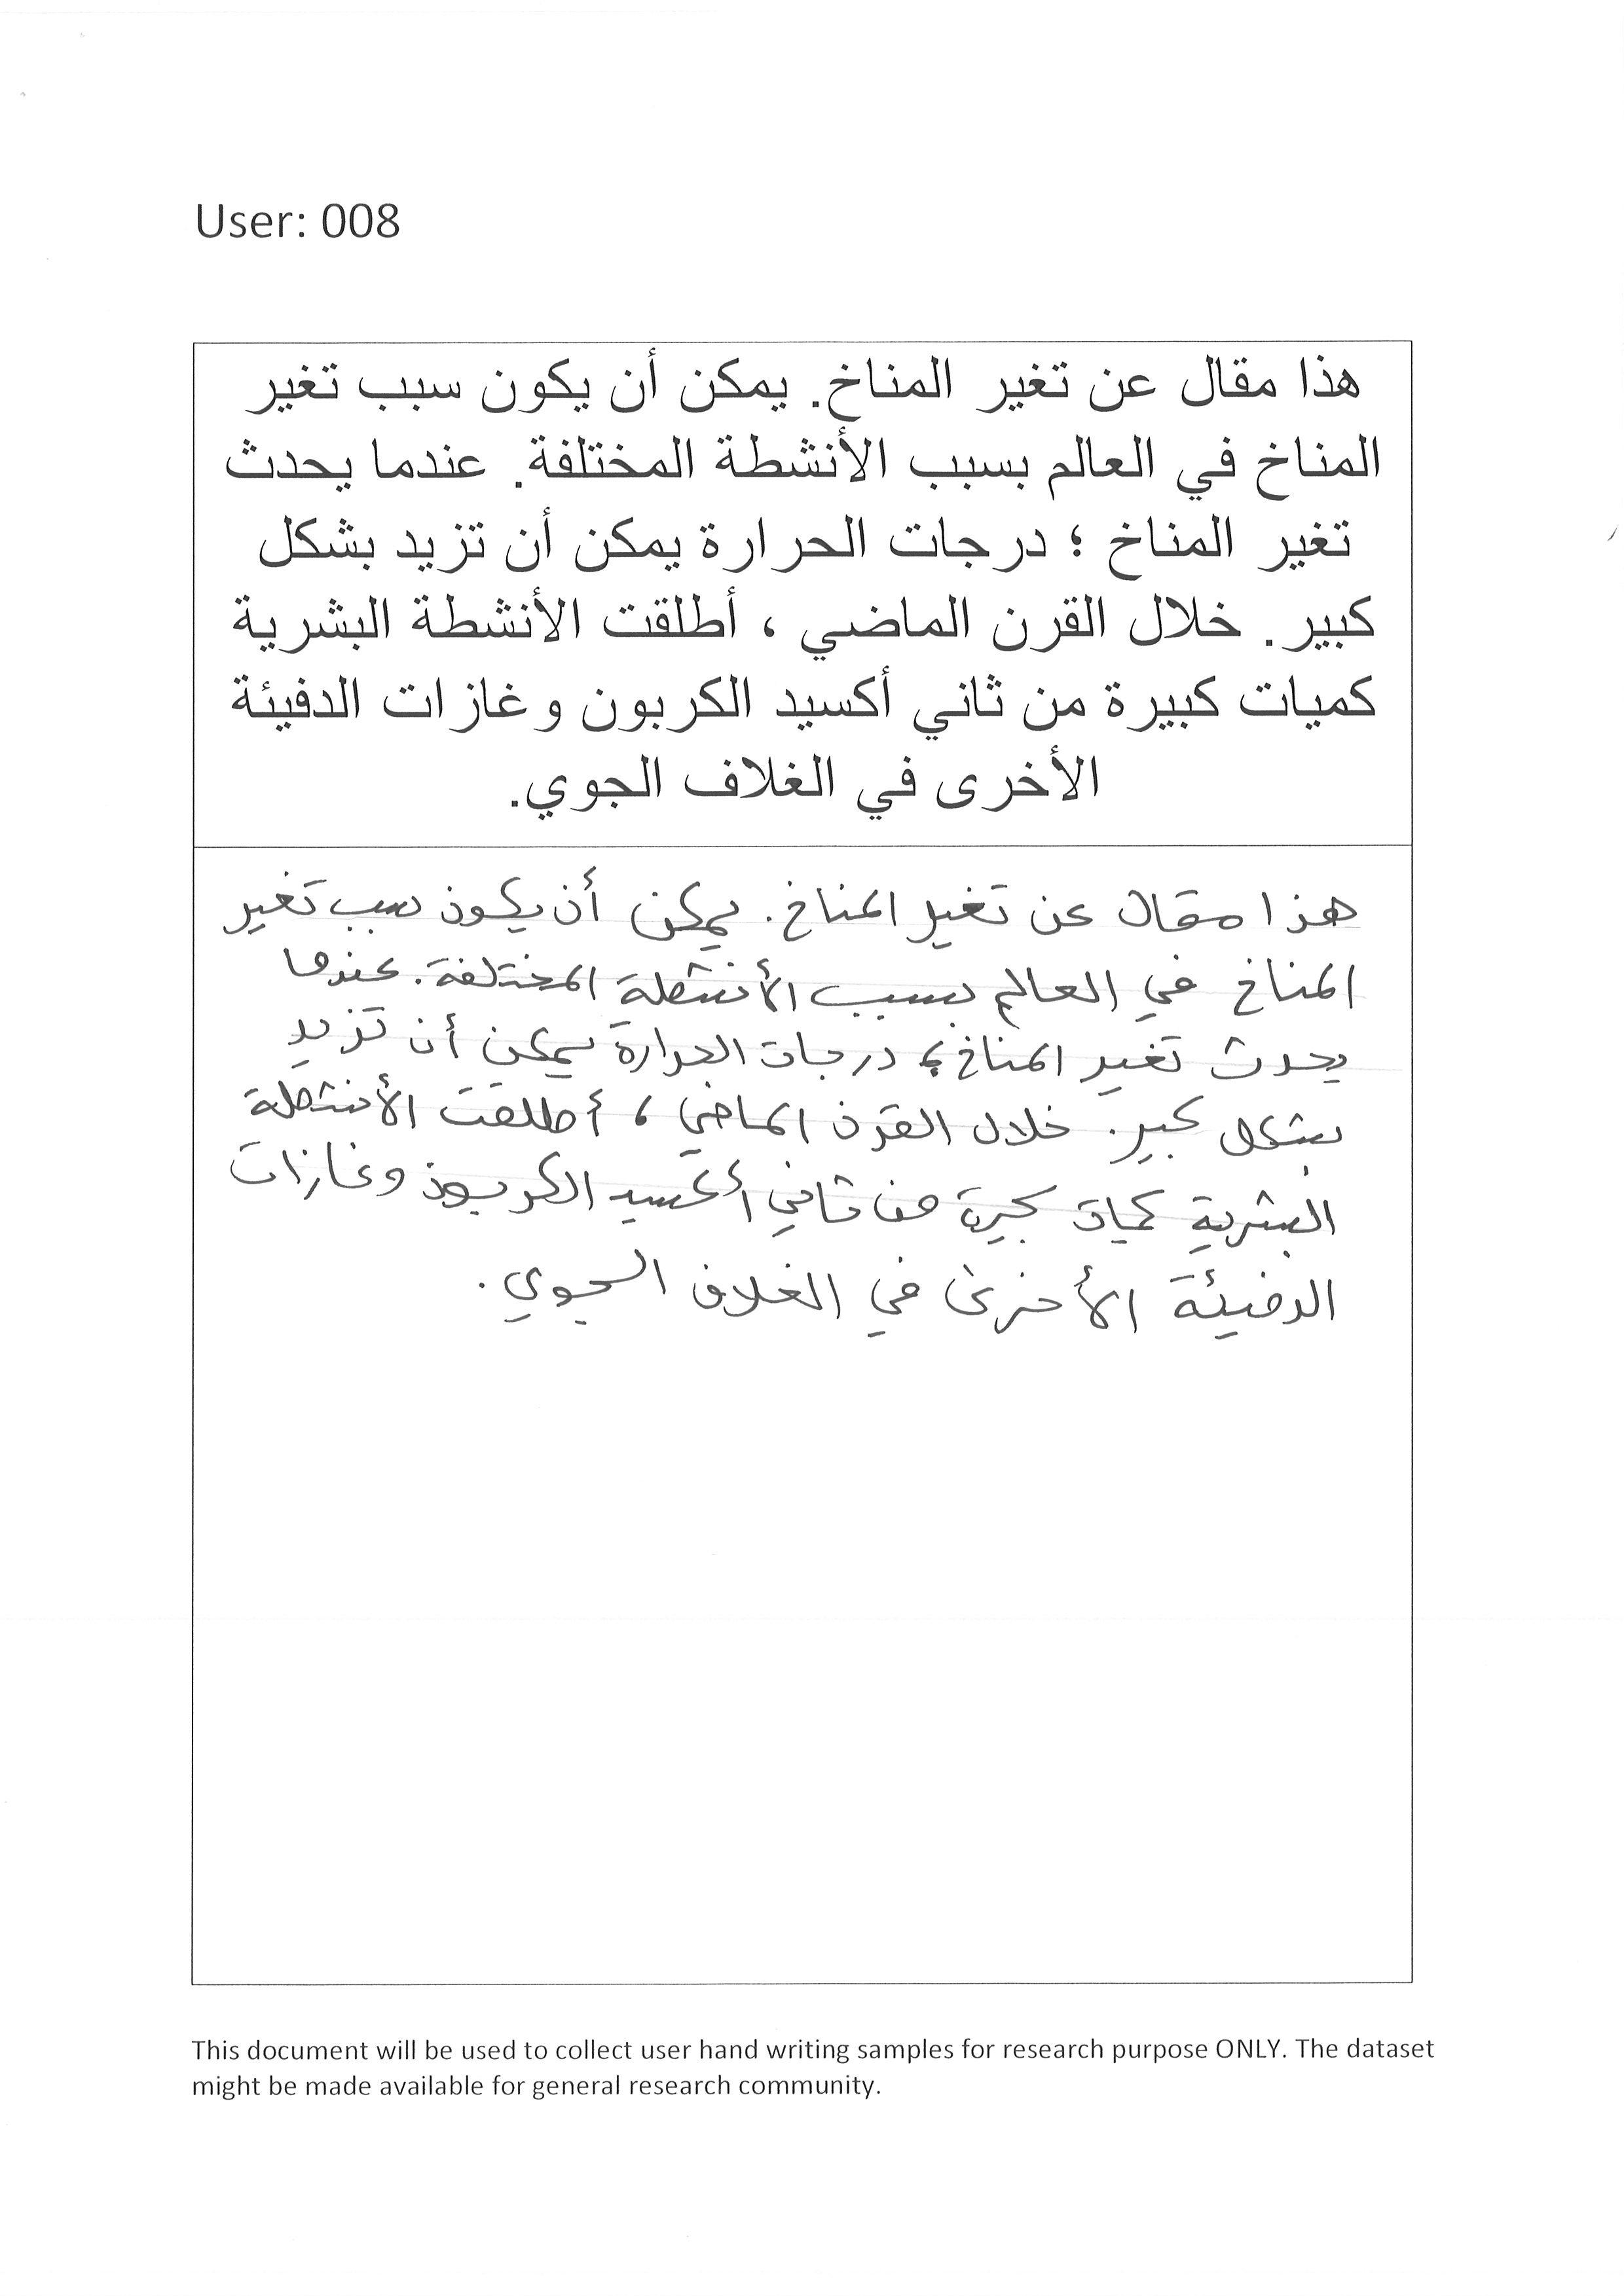 User: 008
هذا مقال عن تغير المناخ. يمكن أن يكون سبب تغير
المناخ في العالم بسبب الأنشطة المختلفة. عندما يحدث
تغير المناخ ؛ درجات الحرارة يمكن أن تزيد بشكل
كبير. خلال القرن الماضي ، أطلقت الأنشطة البشرية
كميات كبيرة من ثاني أكسيد الكربون وغازات الدفيئة
الأخرى في الغلاف الجوي.
هذا مقال عن تغير المناخ. يمكن أن يكون سبب تغير
المناخ في العالم بسبب الأنشطة المختلفة. عندما
يحدث تغير المناخ ؛ درجات الحرارة يمكن أن تزيد
بشكل كبير. خلال القرن الماضي ، أطلقت الأنشطة
البشرية كميات كبيرة من ثاني أكسيد الكربون وغازات
الدفيئة الأخرى في الغلاف الجوي.
This document will be used to collect user hand writing samples for research purpose ONLY. The dataset
might be made available for general research community.